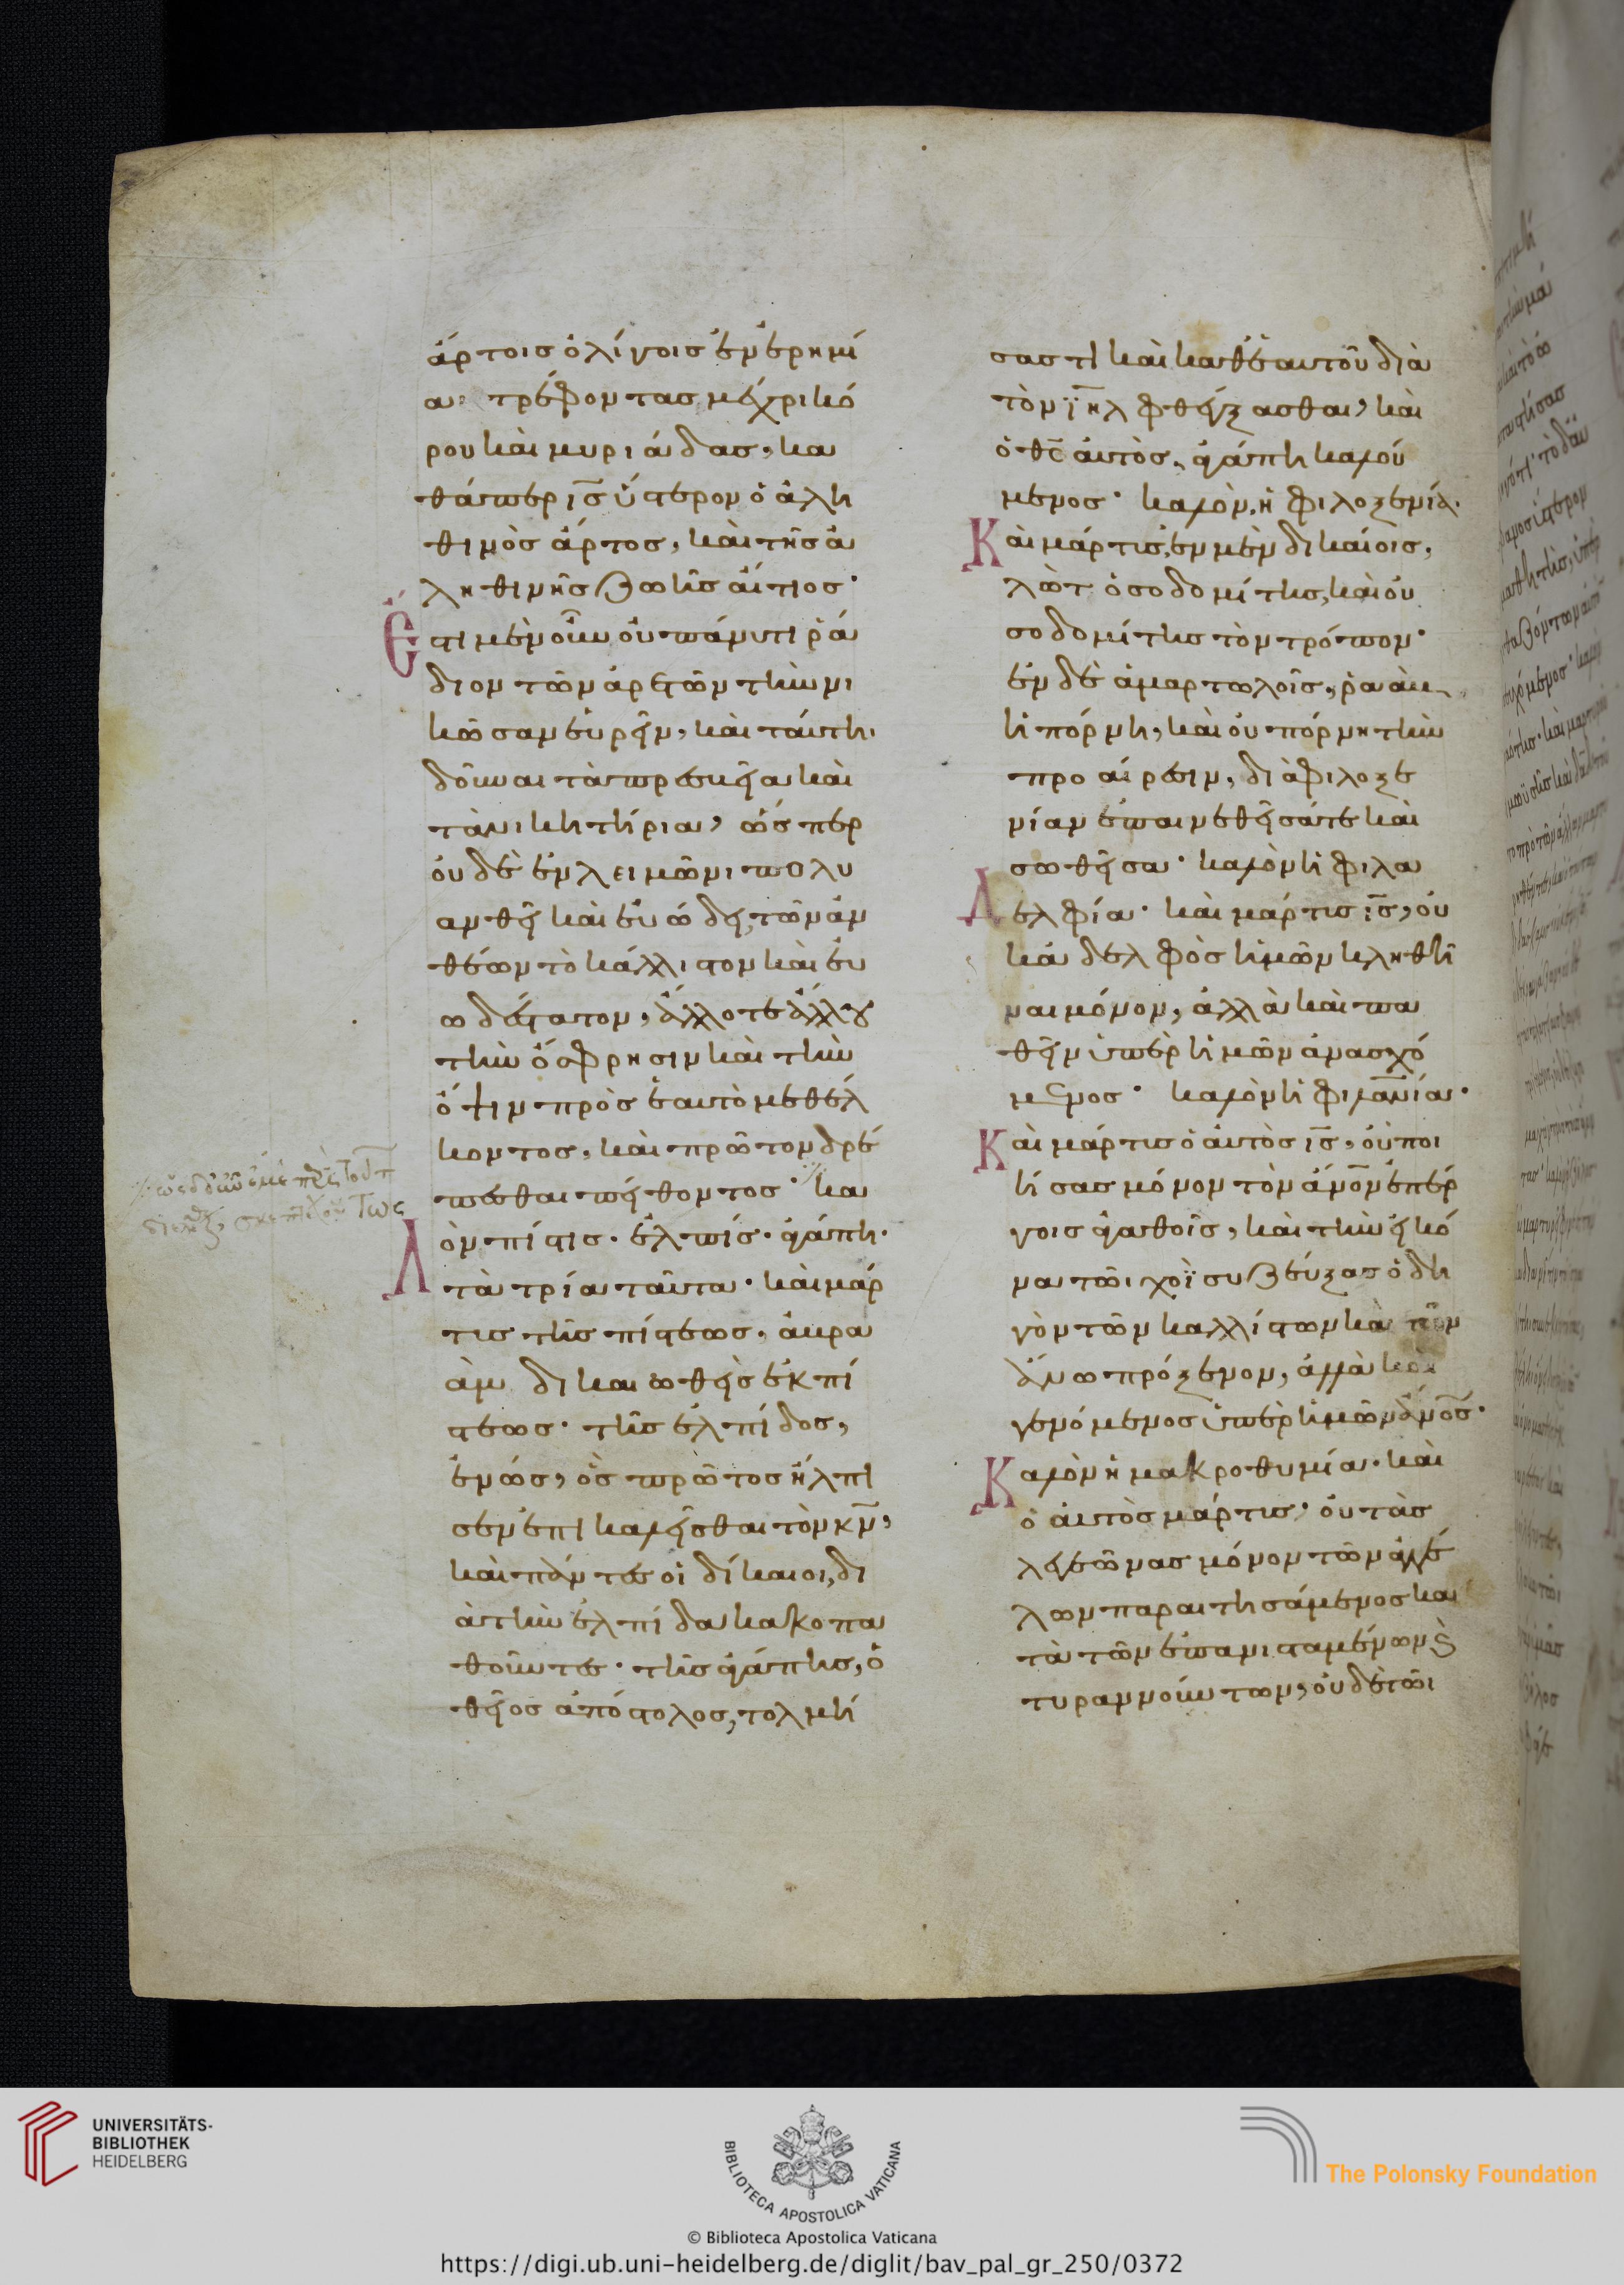 ἄρτοις ὀλίγοις ἐν ἐρημί
α· τρέφοντας μέχρι κό
ρου καὶ μυριάδας, κα
θάπερ ις̅ ὕστερον ὁ ἀλη
θινὸς ἄρτος, καὶ τῆς ἀ
ληθινῆς ζωῆς αἴτιος·
Ἔστι μὲν οὖν οὐ πάνυ τι ῥά
διον τῶν ἀρετῶν τὴν νι
κῶσαν εὑρεῖν, καὶ ταύτη
δοῦναι τὰ πρεσβεῖα καὶ
τὰ νικητήρια, ὥσπερ
οὐδὲ ἐν λειμῶνι πολυ
ανθεῖ καὶ εὐώδει, τῶν ἀν
θέων τὸ κάλλιστον καὶ εὐ
ωδέστατον, ἄλλοτε ἄλλου
τὴν ὄσφρησιν καὶ τὴν
ὄψιν πρὸς ἑαυτὸ μεθέλ
κοντος, καὶ πρῶτον δρέ
πεσθαι πείθοντος· κα
Λὸν πίστις· ἐλπίς· ἀγάπη·
τὰ τρία ταῦτα· καὶ μάρ
τυς τῆς πίστεως, ἀβρα
ὰμ δικαιωθεὶς ἐκ πί
στεως· τῆς ἐλπίδος,
ἐνώς, ὃς πρῶτος ἤλπι
σεν ἐπικαλεῖσθαι τὸν κν̅,
καὶ πάντες οἱ δίκαιοι, δι
ὰ τὴν ἐλπίδα κακοπα
θοῦντες· τῆς ἀγάπης, ὁ
θεῖος ἀπόστολος, τολμή
σας τι καὶ καθ' ἑαυτοῦ διὰ
τὸν ιηλ̅ φθέγξασθαι, καὶ
ὁ θς̅ αὐτὸς, ἀγάπη καλού
μενος· καλὸν ἡ φιλοξενία·
Καὶ μάρτυς, ἐν μὲν δικαίοις,
λὼτ ὁ σοδομίτης, καὶ οὐ
σοδομίτης τὸν τρόπον·
ἐν δὲ ἁμαρτωλοῖς, ῥαὰβ
ἡ πόρνη, καὶ οὐ πόρνη τὴν
προαίρεσιν, διὰ φιλοξε
νίαν ἐπαινεθεῖσά τε καὶ
σωθεῖσα· καλὸν ἡ φιλα
Δελφία· καὶ μάρτυς ις̅, οὐ
κ ἀδελφὸς ἡμῶν κληθῆ
ναι μόνον, ἀλλὰ καὶ πα
θεῖν ὑπὲρ ἡμῶν ἀνασχό
μενος· καλὸν ἡ φιλανία·
Καὶ μάρτυς ὁ αὐτὸς ις̅, οὐ ποι
ήσας μόνον τὸν ἄνον̅ ἐπ' ἔρ
γοις ἀγαθοῖς, καὶ τὴν εἰκό
να τῶι χοῒ συζεύξας ὁδη
γὸν τῶν καλλίστων καὶ τῶν
ἄνω πρόξενον, ἀλλὰ καὶ
γενόμενος ὑπὲρ ἡμῶν ἄνος̅·
Καλὸν ἡ μακροθυμία· καὶ
ὁ αὐτὸς μάρτυς, οὐ τὰς
λεγεῶνας μόνον τῶν ἀγγέ
λων παραιτησάμενος κα
τὰ τῶν ἐπανισταμένων ϗ
τυραννούντων, οὐδὲ τῶι
UNIVERSITÄTS-
BIBLIOTHEK
HEIDELBERG
BIBLIOTECA APOSTOLICA VATICANA
The Polonsky Foundation
© Biblioteca Apostolica Vaticana
https://digi.ub.uni-heidelberg.de/diglit/bav_pal_gr_250/0372